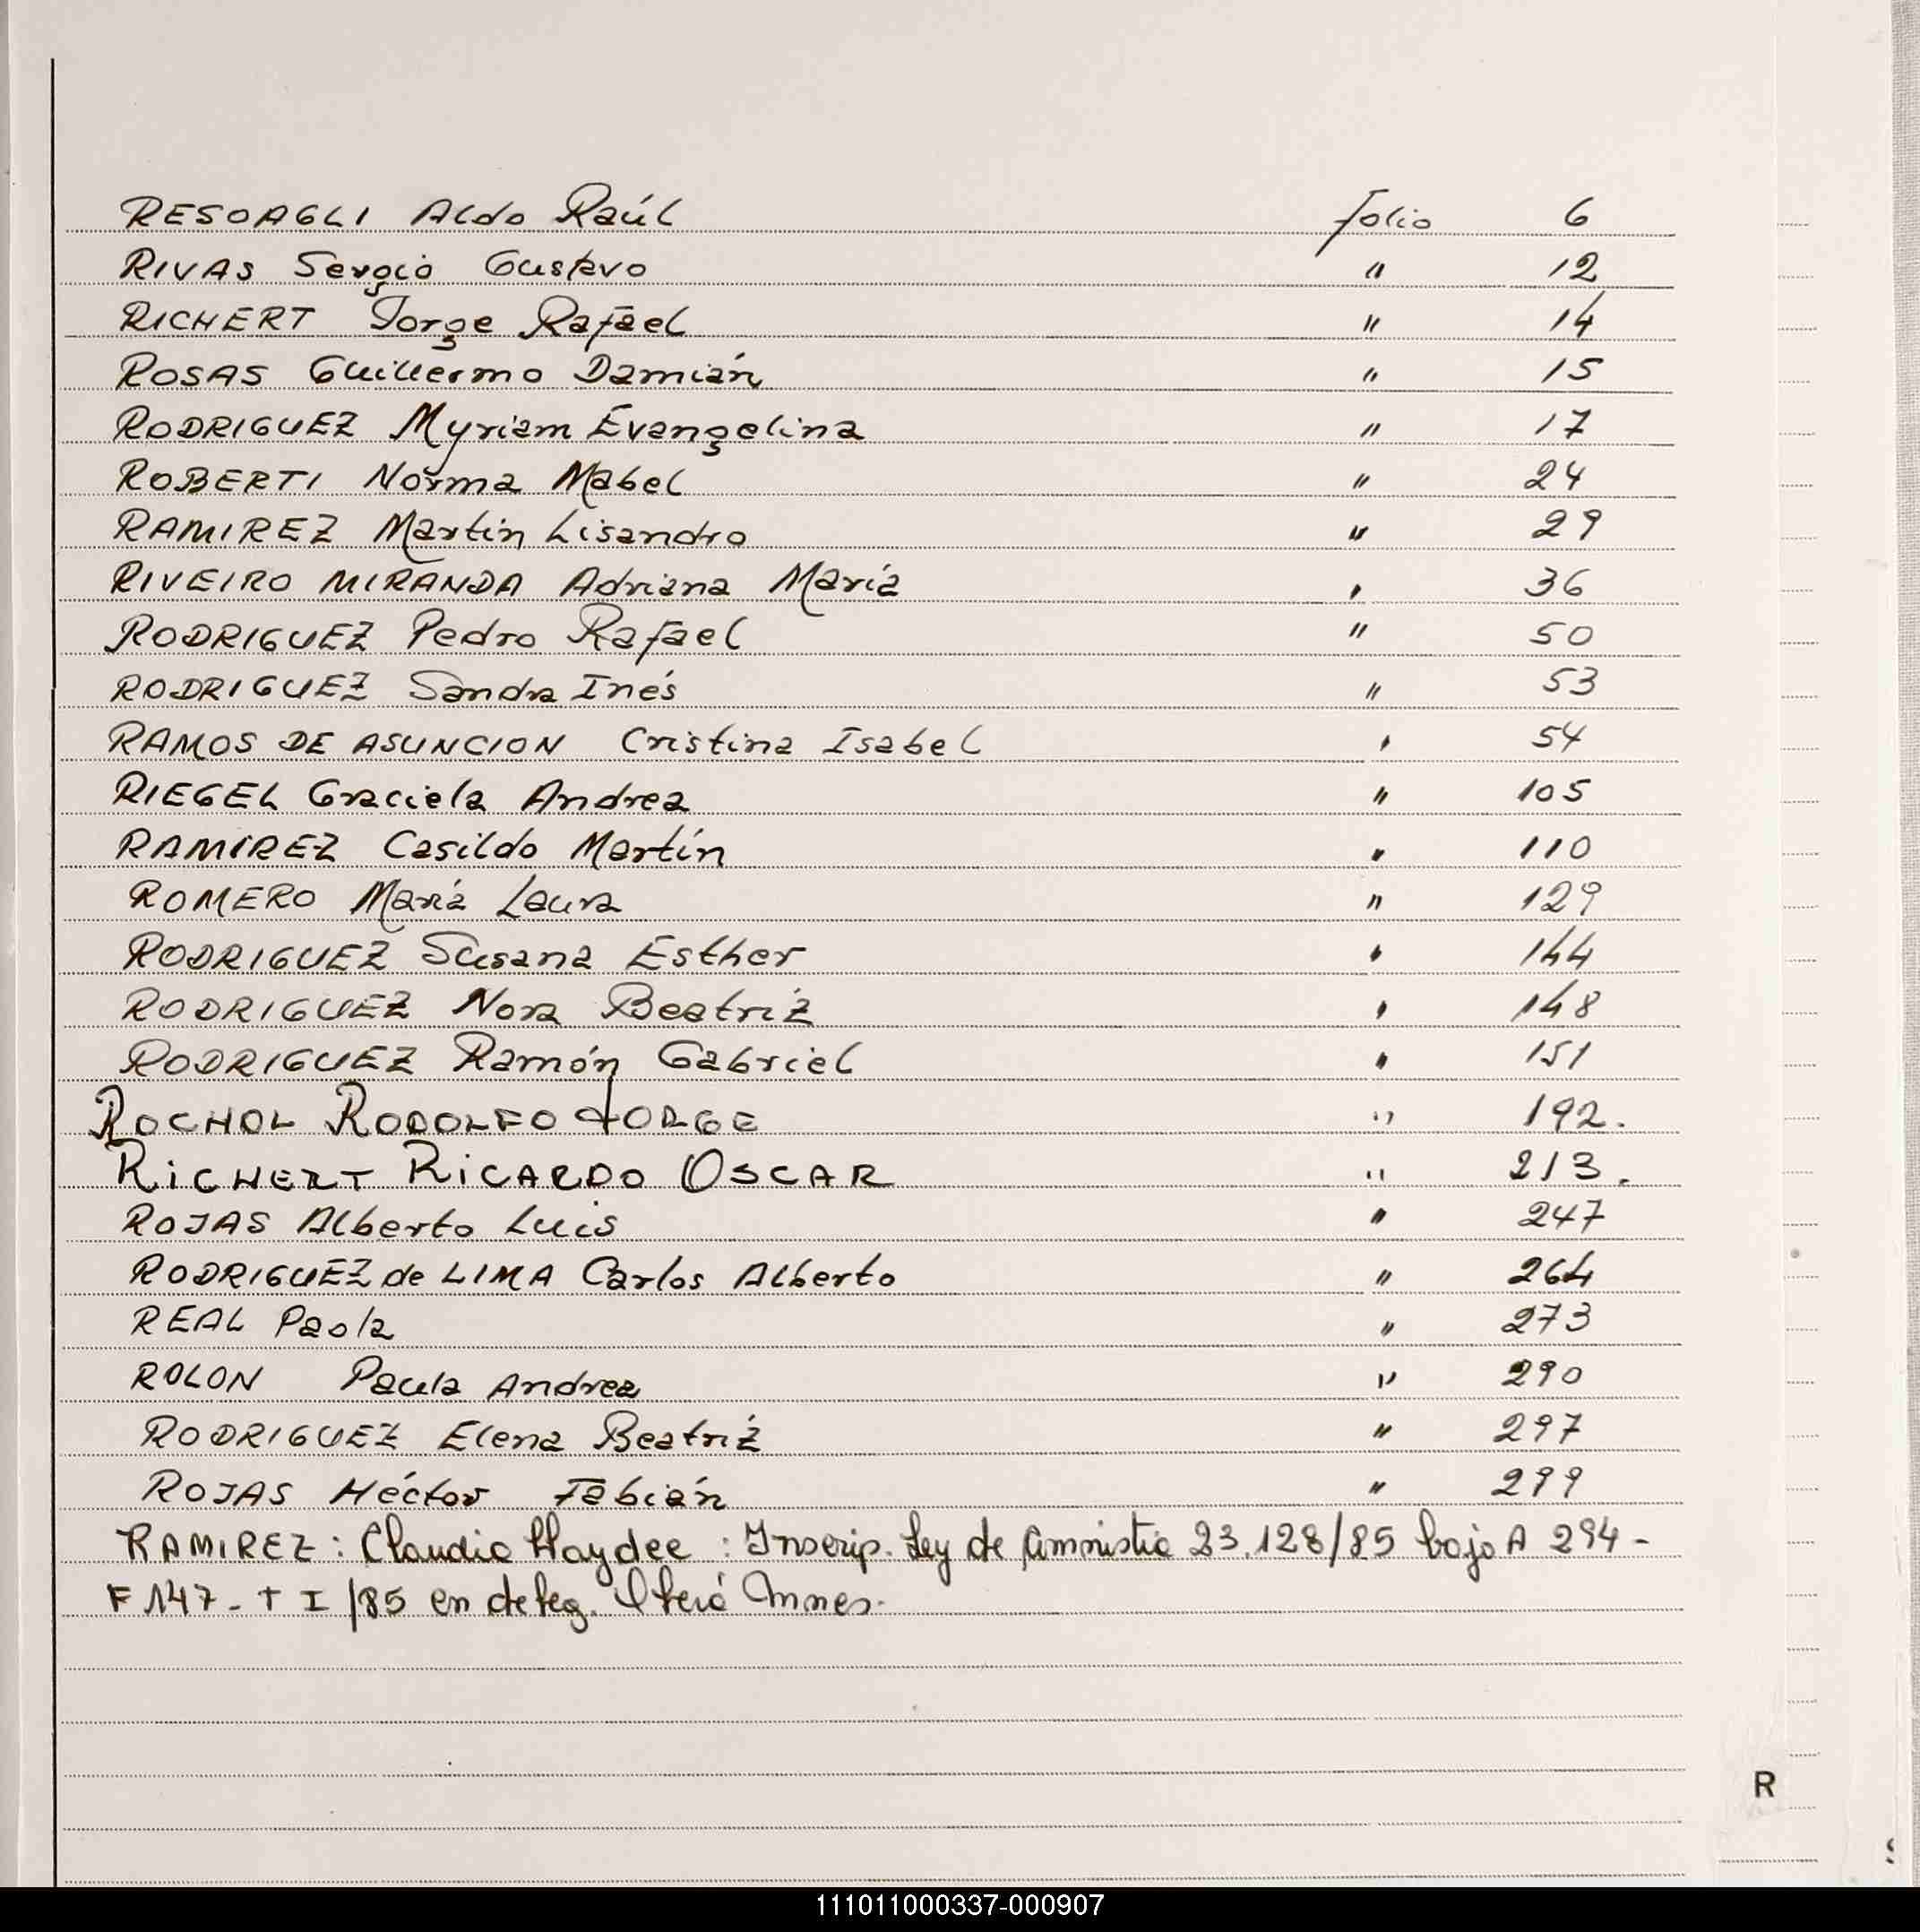 RESOAGLI Aldo Raúl folio 6
RIVAS Sergio Gustavo " 12
RICHERT Jorge Rafael " 14
ROSAS Guillermo Damián " 15
RODRIGUEZ Myriam Evangelina " 17
ROBERTI Norma Mabel " 24
RAMIREZ Martin Lisandro " 29
RIVEIRO MIRANDA Adriana María " 36
RODRIGUEZ Pedro Rafael " 50
RODRIGUEZ Sandra Inés " 53
RAMOS DE ASUNCION Cristina Isabel " 54
RIEGEL Graciela Andrea " 105
RAMIREZ Casildo Martín " 110
ROMERO María Laura " 129
RODRIGUEZ Susana Esther " 144
RODRIGUEZ Nora Beatriz " 148
RODRIGUEZ Ramón Gabriel " 151
ROCHOL RODOLFO JORGE " 192.
RICHERT RICARDO OSCAR " 213.
ROJAS Alberto Luis " 247
RODRIGUEZ de LIMA Carlos Alberto " 264
REAL Paola " 273
ROLON Paula Andrea " 290
RODRIGUEZ Elena Beatriz " 297
ROJAS Héctor Fabián " 299
RAMIREZ: Claudio Haydee : Inscrip. Ley de Amnistia 23.128/85 bajo A 294-
F 147- T I /85 en deleg.
R
111011000337-000907